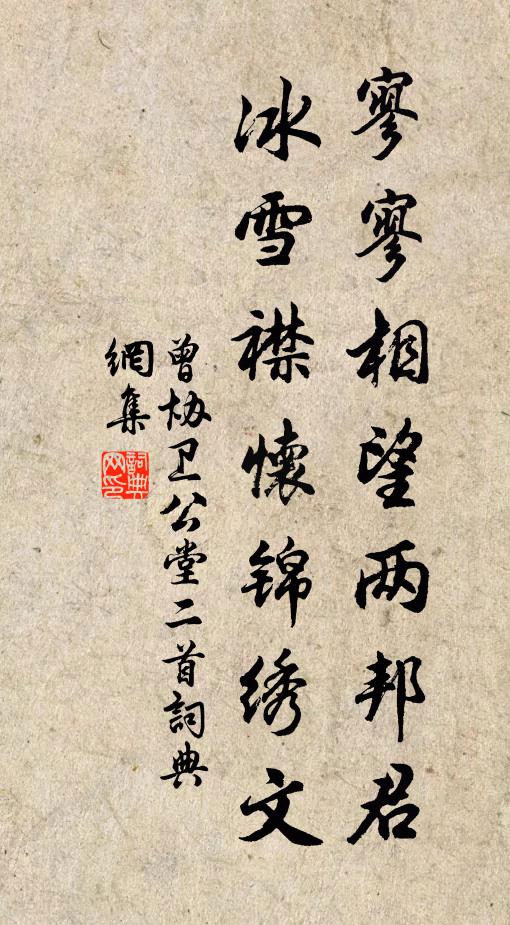 寥寥相望两邦君
冰雪襟懷锦绣文
曾协卫公堂二首詞典
網集
詞典
网印